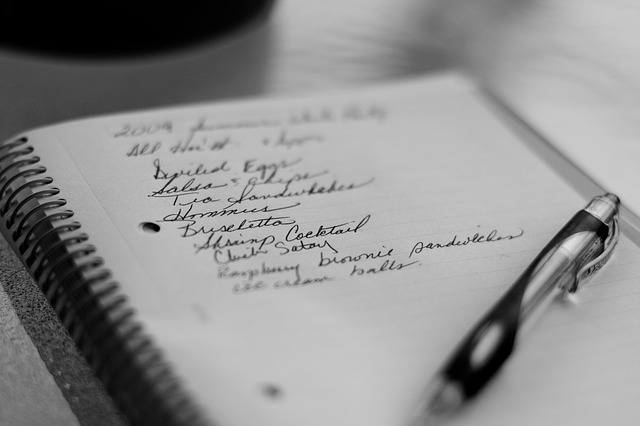 2009 Summer White Party
All Hor's
Deviled Eggs
Salsa & Chips
Tea Sandwhiches
Hommus
Bruschetta
Shrimp Cocktail
Chick Satay
Raspberry brownie sandwiches
ice cream balls.